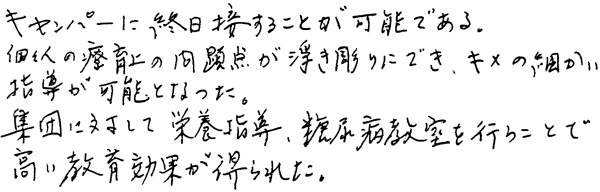 キャンパーに終日接することが可能である。
個人の療育上の問題点が浮き彫りにでき、キメの細かい
指導が可能となった。
集団に対して栄養指導、糖尿病教室を行うことで
高い教育効果が得られた。